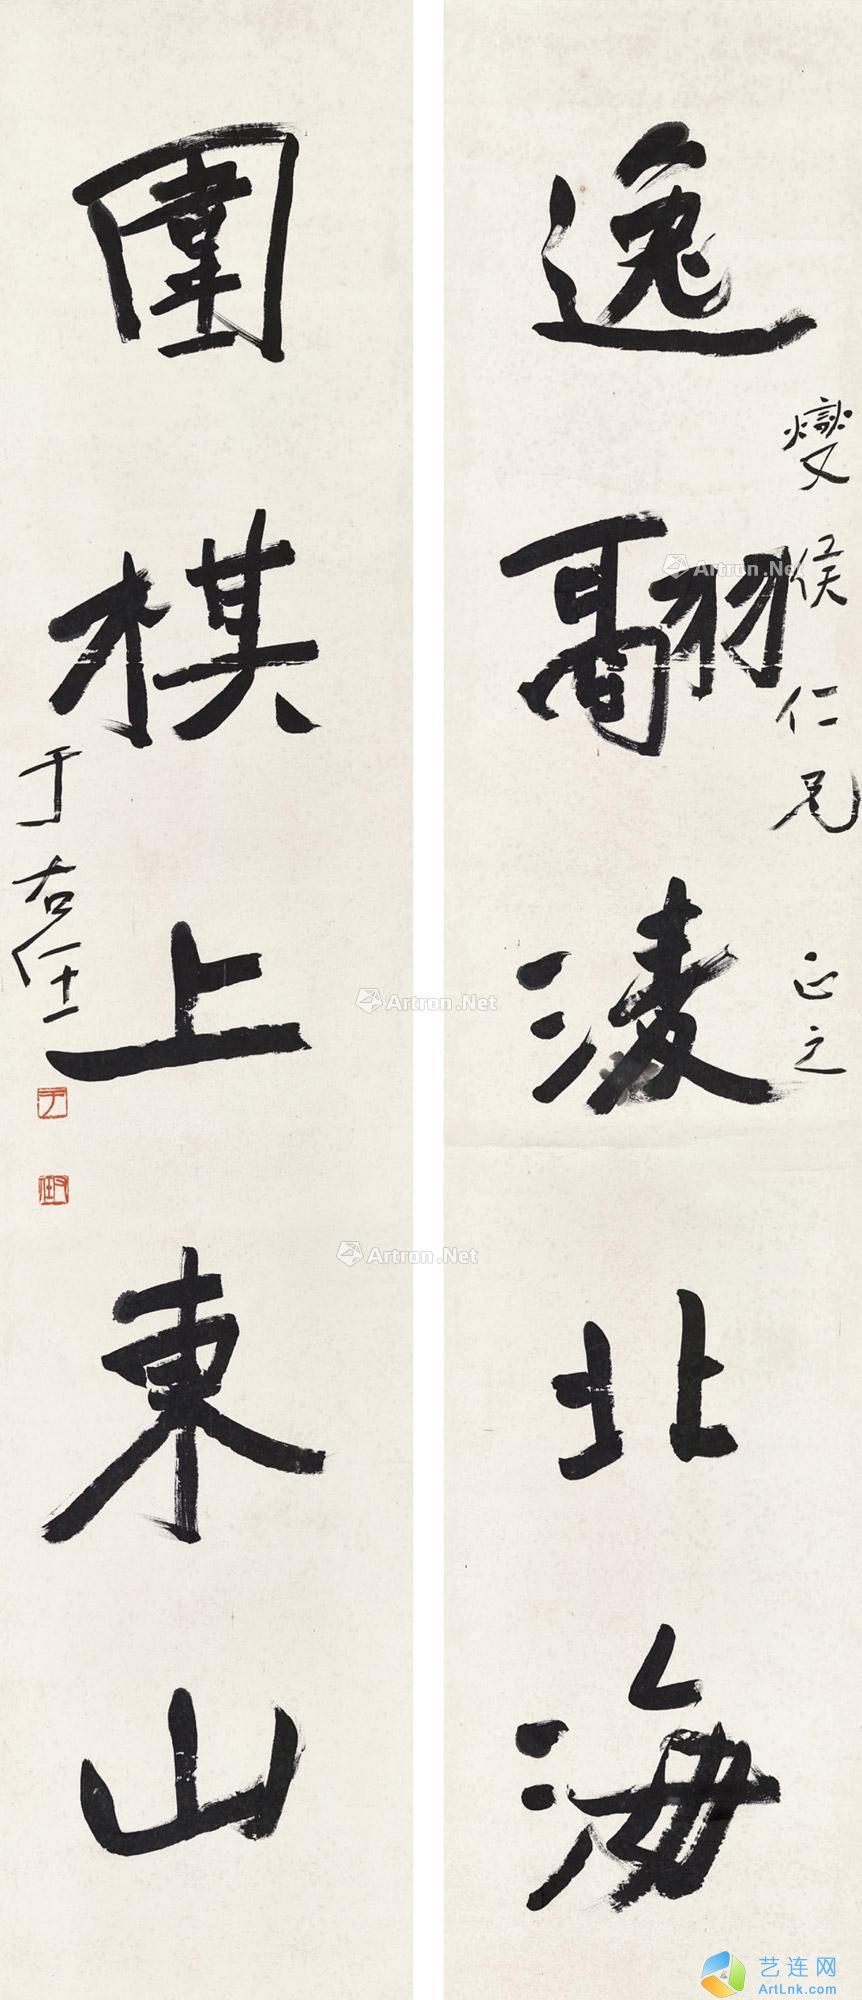 逸翮淩北海
燮侯仁兄正之
圍棋上東山
于右任
于
右任
Artron.Net
Artron.Net
Artron.Net
艺连网
ArtLnk.com